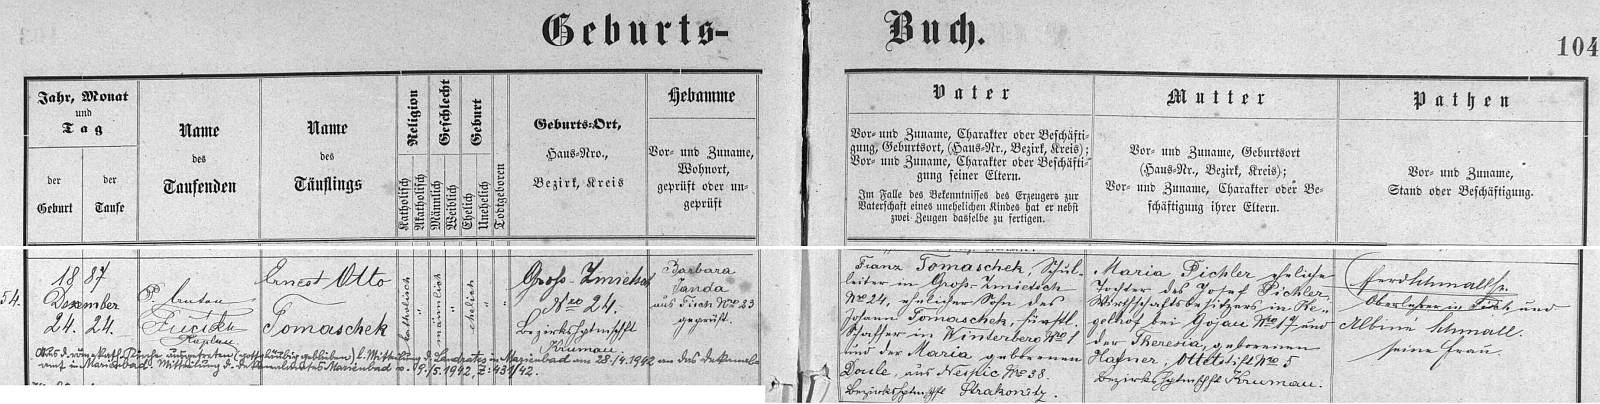 Geburts-
Buch.
104
Jahr, Monat
und
Tag
der
Geburt
der
Taufe
Name
des
Taufenden
Name
des
Täuflings
Religion
Katholisch
Akatholisch
Geschlecht
Männlich
Weiblich
Geburt
Ehelich
Unehelich
Todtgeboren
Geburts-Ort,
Haus-Nro.,
Bezirk, Kreis
Hebamme
Vor- und Zuname,
Wohnort,
geprüft oder un-
geprüft
Vater
Vor- und Zuname, Charakter oder Beschäfti-
gung, Geburtsort, (Haus-Nr., Bezirk, Kreis);
Vor- und Zuname, Charakter oder Beschäfti-
gung seiner Eltern.
Im Falle des Bekenntnisses des Erzeugers zur
Vaterschaft eines unehelichen Kindes hat er nebst
zwei Zeugen dasselbe zu fertigen.
Mutter
Vor- und Zuname, Geburtsort
(Haus-Nr., Bezirk, Kreis);
Vor- und Zuname, Charakter oder Be-
schäftigung ihrer Eltern.
Pathen
Vor- und Zuname,
Stand oder Beschäftigung.
54.
1887
Dezember
24. 24.
P. Anton
Kaplan
Ernest Otto
Tomaschek
katholisch
"
männlich
"
ehelich
"
Gross-Zmietsch
Nro 24.
Bezirkshptmschft
Krumau.
Barbara
Janda
aus Tisch Nro 23
geprüft.
Franz Tomaschek, Schul-
leiter in Gross-Zmietsch
No 24, ehelicher Sohn des
Johann Tomaschek, fürstl.
Schaffer in Winterberg No 1
und der Maria geborenen
Doule, aus No 38.
Bezirkshptmschft Strakonitz.
Maria Pichler eheliche
Tochter des Josef Pichler,
Wirthschaftsbesitzers in
bei Gojau No 17 und
der Theresia, geborenen
Hafner, Ottetstift No 5
Bezirkshptmschft Krumau.
Ferd Schmall
Oberlehrer in Tisch und
Albine Schmall
seine Frau.
Aus d. röm. kath. Kirche ausgetreten (gottgläubig geblieben) l. Mitteilung d. Landrates in Marienbad vom 28./4.1942 an das Dekanal-
amt in Marienbad. Mitteilung d. Dekanalamtes Marienbad v. 9./5.1942, Z: 431/42.